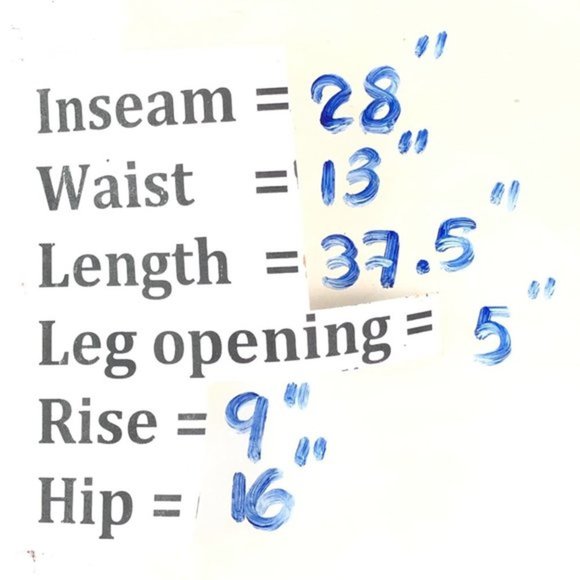 Inseam = 28"
Waist = 13"
Length = 37.5"
Leg opening = 5"
Rise = 9"
Hip = 16"